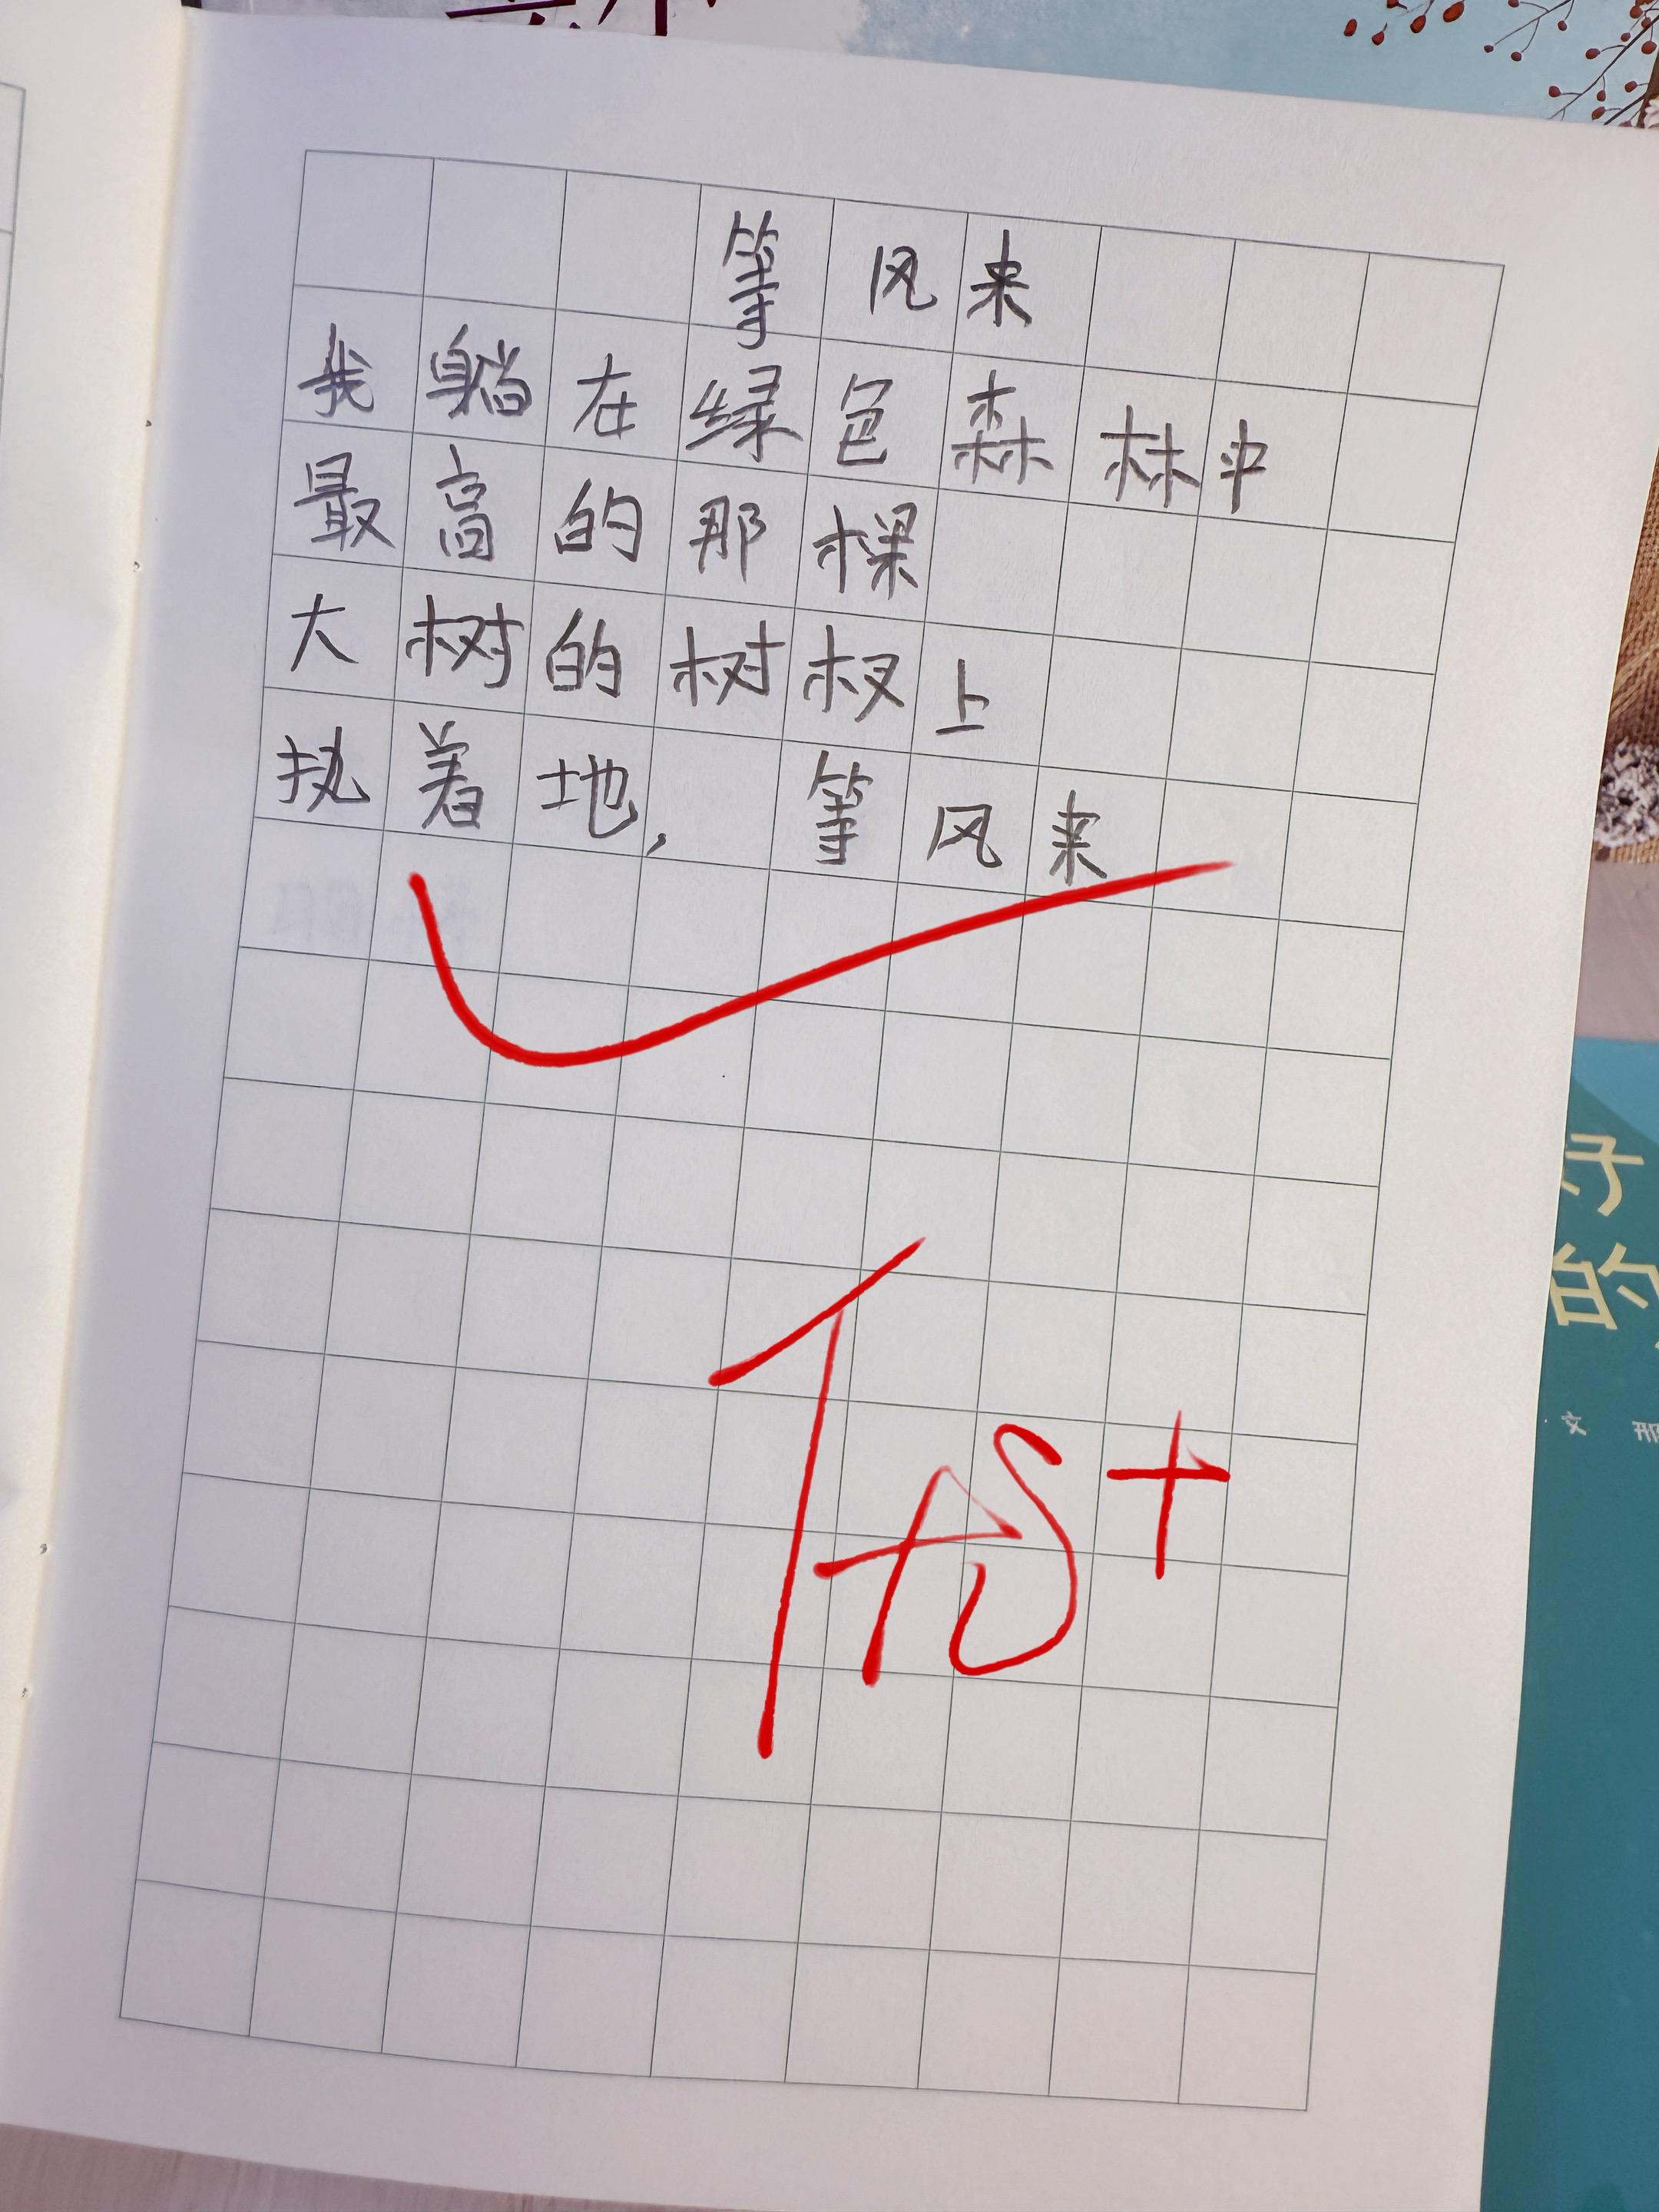 等风来
我躺在绿色森林中
最高的那棵
大树的树杈上
执着地, 等风来
好
的
文